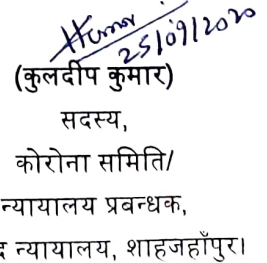 25/09/2020
(कुलदीप कुमार)
सदस्य,
कोरोना समिति/
न्यायालय प्रबन्धक,
न्यायालय, शाहजहाँपुर।